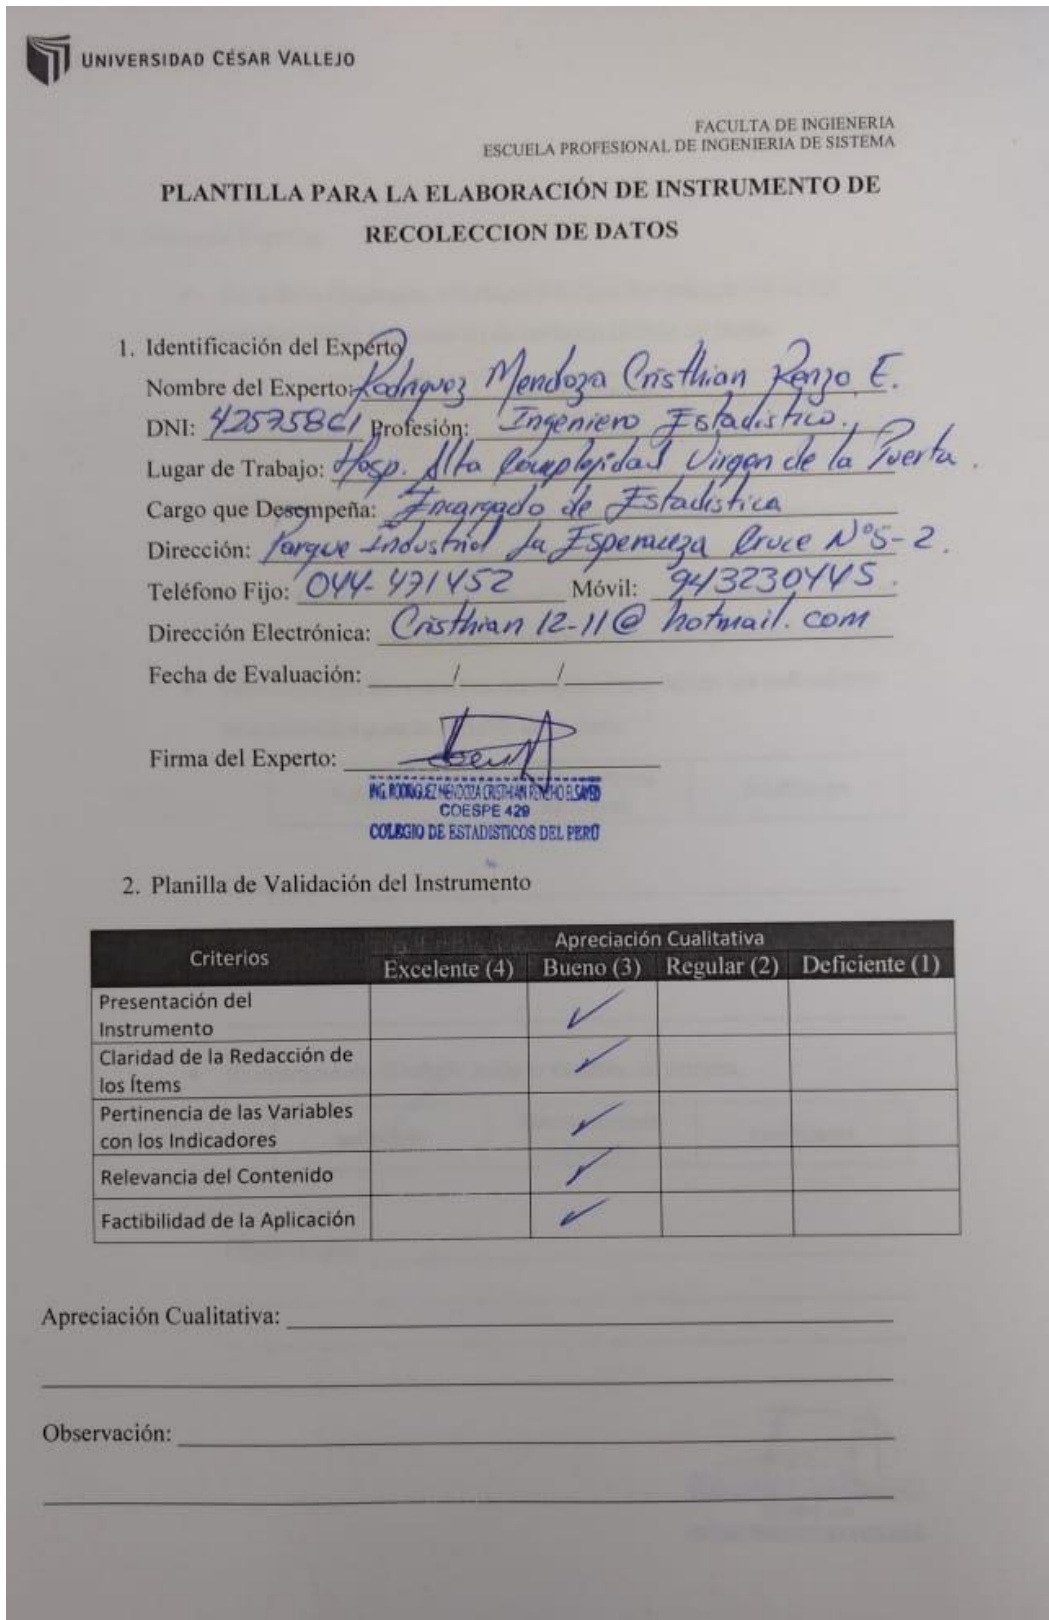 UNIVERSIDAD CÉSAR VALLEJO
FACULTA DE INGIENERIA
ESCUELA PROFESIONAL DE INGENIERIA DE SISTEMA
PLANTILLA PARA LA ELABORACIÓN DE INSTRUMENTO DE
RECOLECCION DE DATOS
1. Identificación del Experto
Nombre del Experto: Rodriguez Mendoza Cristhian Renzo E.
DNI: Profesión: Ingeniero Estadistico.
Lugar de Trabajo: Hosp. Alta Complejidad Virgen de la Puerta.
Cargo que Desempeña: Encargado de Estadistica
Dirección: Parque Industrial La Esperanza Cruce N°5-2.
Teléfono Fijo: 044-471452 Móvil: 943230445.
Dirección Electrónica: Cristhian 12-11@hotmail.com
Fecha de Evaluación: / /
Firma del Experto:
ING. RODRIGUEZ MENDOZA CRISTHIAN
COESPE 429
COLEGIO DE ESTADISTICOS DEL PERÚ
2. Planilla de Validación del Instrumento
Criterios Apreciación Cualitativa
Excelente (4) Bueno (3) Regular (2) Deficiente (1)
Presentación del
Instrumento ✓
Claridad de la Redacción de
los Ítems ✓
Pertinencia de las Variables
con los Indicadores ✓
Relevancia del Contenido ✓
Factibilidad de la Aplicación ✓
Apreciación Cualitativa:
Observación: